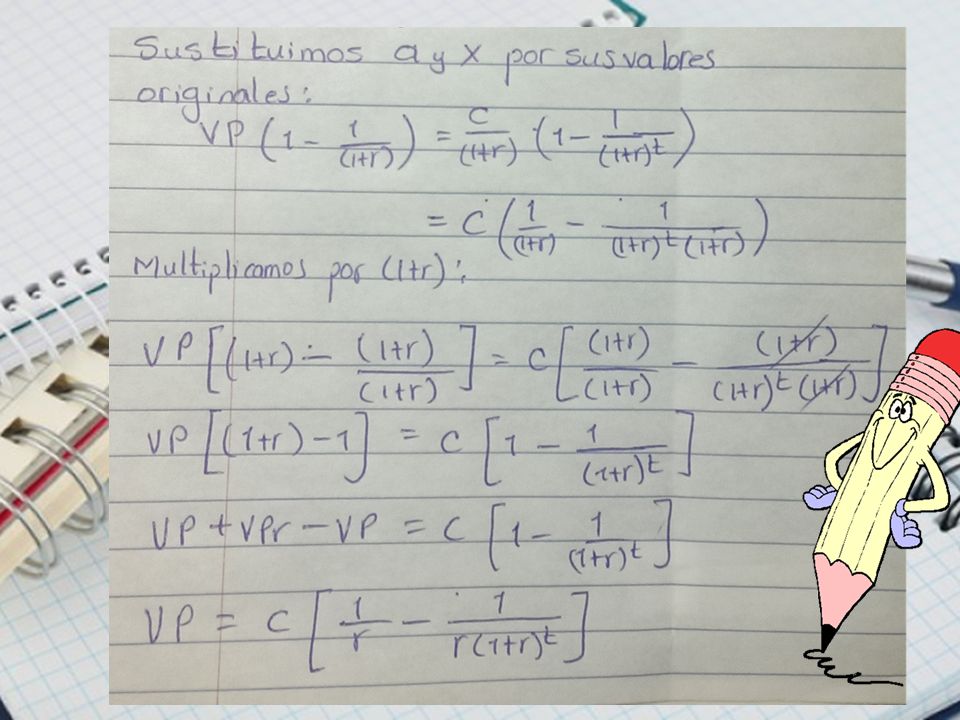 Sustituimos a y x por sus valores
originales:
VP (1 - 1/(1+r)) = C/(1+r) (1 - 1/(1+r)^t)
= C (1/(1+r) - 1/((1+r)^t (1+r)))
Multiplicamos por (1+r):
VP [(1+r) - (1+r)/(1+r)] = C [(1+r)/(1+r) - (1+r)/((1+r)^t (1+r))]
VP [(1+r) - 1] = C [1 - 1/(1+r)^t]
VP + VPr - VP = C [1 - 1/(1+r)^t]
VP = C [1/r - 1/(r(1+r)^t)]